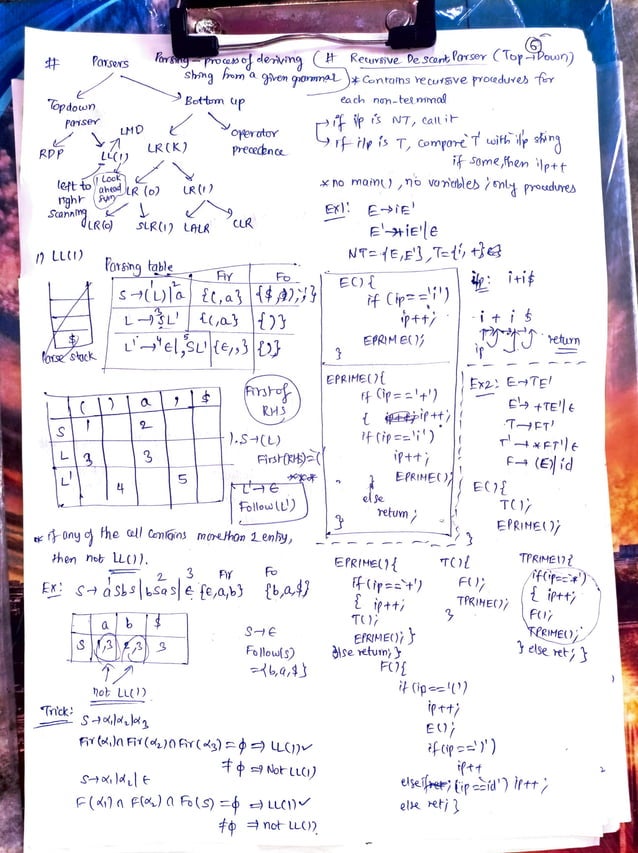 # Parsers
Parsing - process of deriving
string from a given grammar
Topdown
parser
Bottom up
RDP
LL(1)
LMD
LR(K)
operator
precedence
left to
right
scanning
1 Look
ahead
sym
LR(0)
LR(1)
LR(0)
SLR(1)
LALR
CLR
1) LL(1)
$
Parse stack
Parsing table
Fir Fo
S→(L)|a {(,a} {$,),,}
L→SL' {(,a} {)}
L'→ε|,SL' {ε,,} {)}
( ) a , $
S 1 2
L 3 3
L' 4 5
First of
RHS
1. S→(L)
First(RHS)=(
L'→ε
Follow(L')
* if any of the cell contains more than 1 entry,
then not LL(1).
Ex: S→aSbS|bSaS|ε {ε,a,b} {b,a,$}
1 2 3 Fir Fo
a b $
S 1,3 2,3 3
not LL(1)
S→ε
Follow(S)
={b,a,$}
Trick: S→α1|α2|α3
Fir(α1)∩Fir(α2)∩Fir(α3)=ϕ ⇒ LL(1)✓
≠ϕ ⇒ Not LL(1)
S→α1|α2|ε
F(α1)∩F(α2)∩Fo(S)=ϕ ⇒ LL(1)✓
≠ϕ ⇒ not LL(1)
6
# Recursive Descent Parser (Top-Down)
* Contains recursive procedures for
each non-terminal
→ if ip is NT, call it
→ if i/p is T, compare T with i/p string
if same, then i/p++
* no main(), no variables, only procedures
Ex1: E→iE'
E'→+iE'|ε
NT={E,E'}, T={i,+}
E(){
if (ip=='i')
ip++;
EPRIME();
}
i/p: i+i$
i + i $
ip
return
EPRIME(){
if(ip=='+')
{ ip++;
if(ip=='i')
ip++;
EPRIME();
}
else
return;
}
Ex2: E→TE'
E'→+TE'|ε
T→FT'
T'→*FT'|ε
F→(E)|id
E(){
T();
EPRIME();
}
EPRIME(){
if(ip=='+')
{ ip++;
T();
EPRIME(); }
else return; }
T(){
F();
TPRIME();
}
TPRIME(){
if(ip=='*')
{ ip++;
F();
TPRIME();
} else ret; }
F(){
if (ip=='(')
ip++;
E();
if(ip==')')
ip++
else if (ip=='id') ip++;
else ret; }